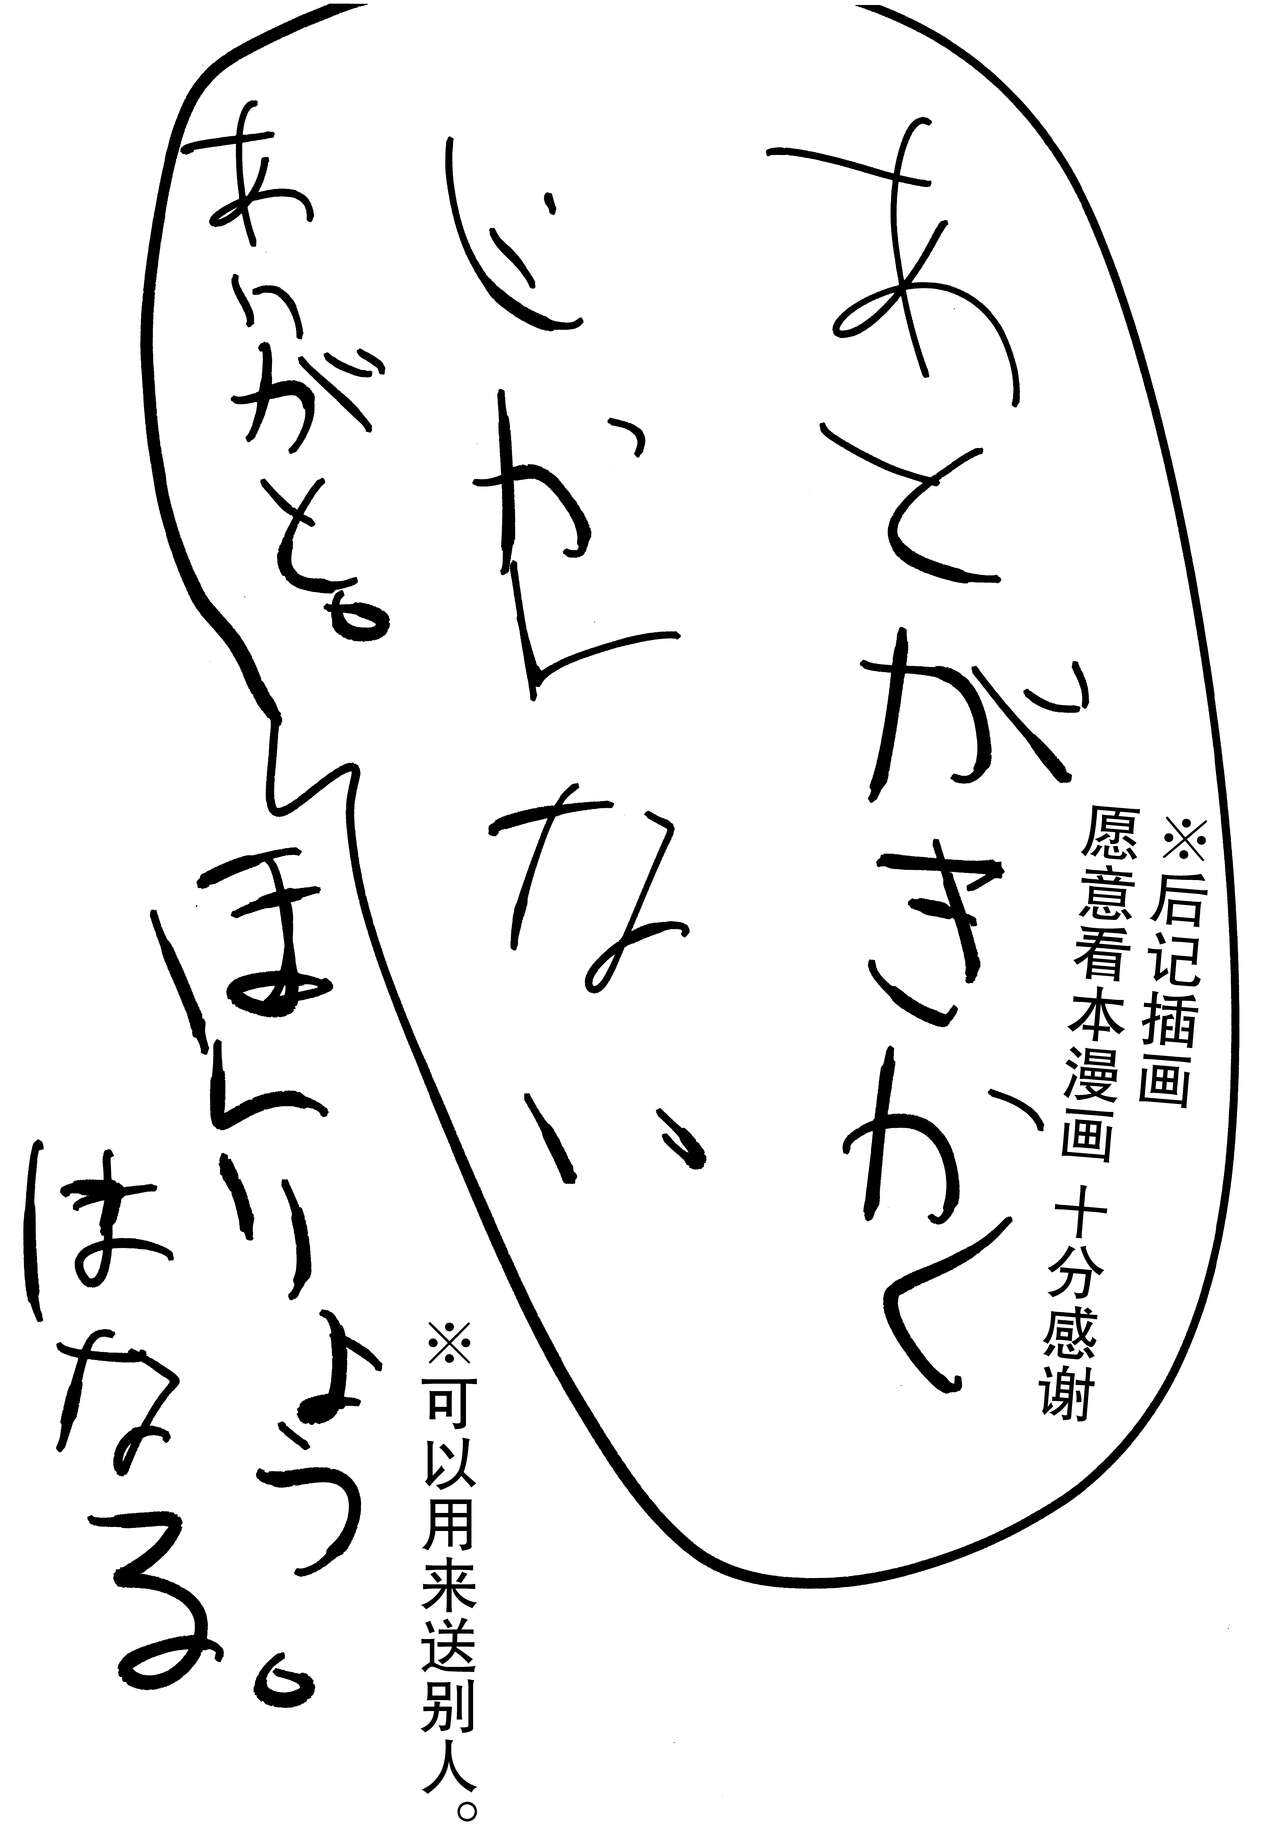 あとがきかく
じかんない
ありがと。
※后记插画
愿意看本漫画 十分感谢
ほんりょう
はなる。
※可以用来送别人。